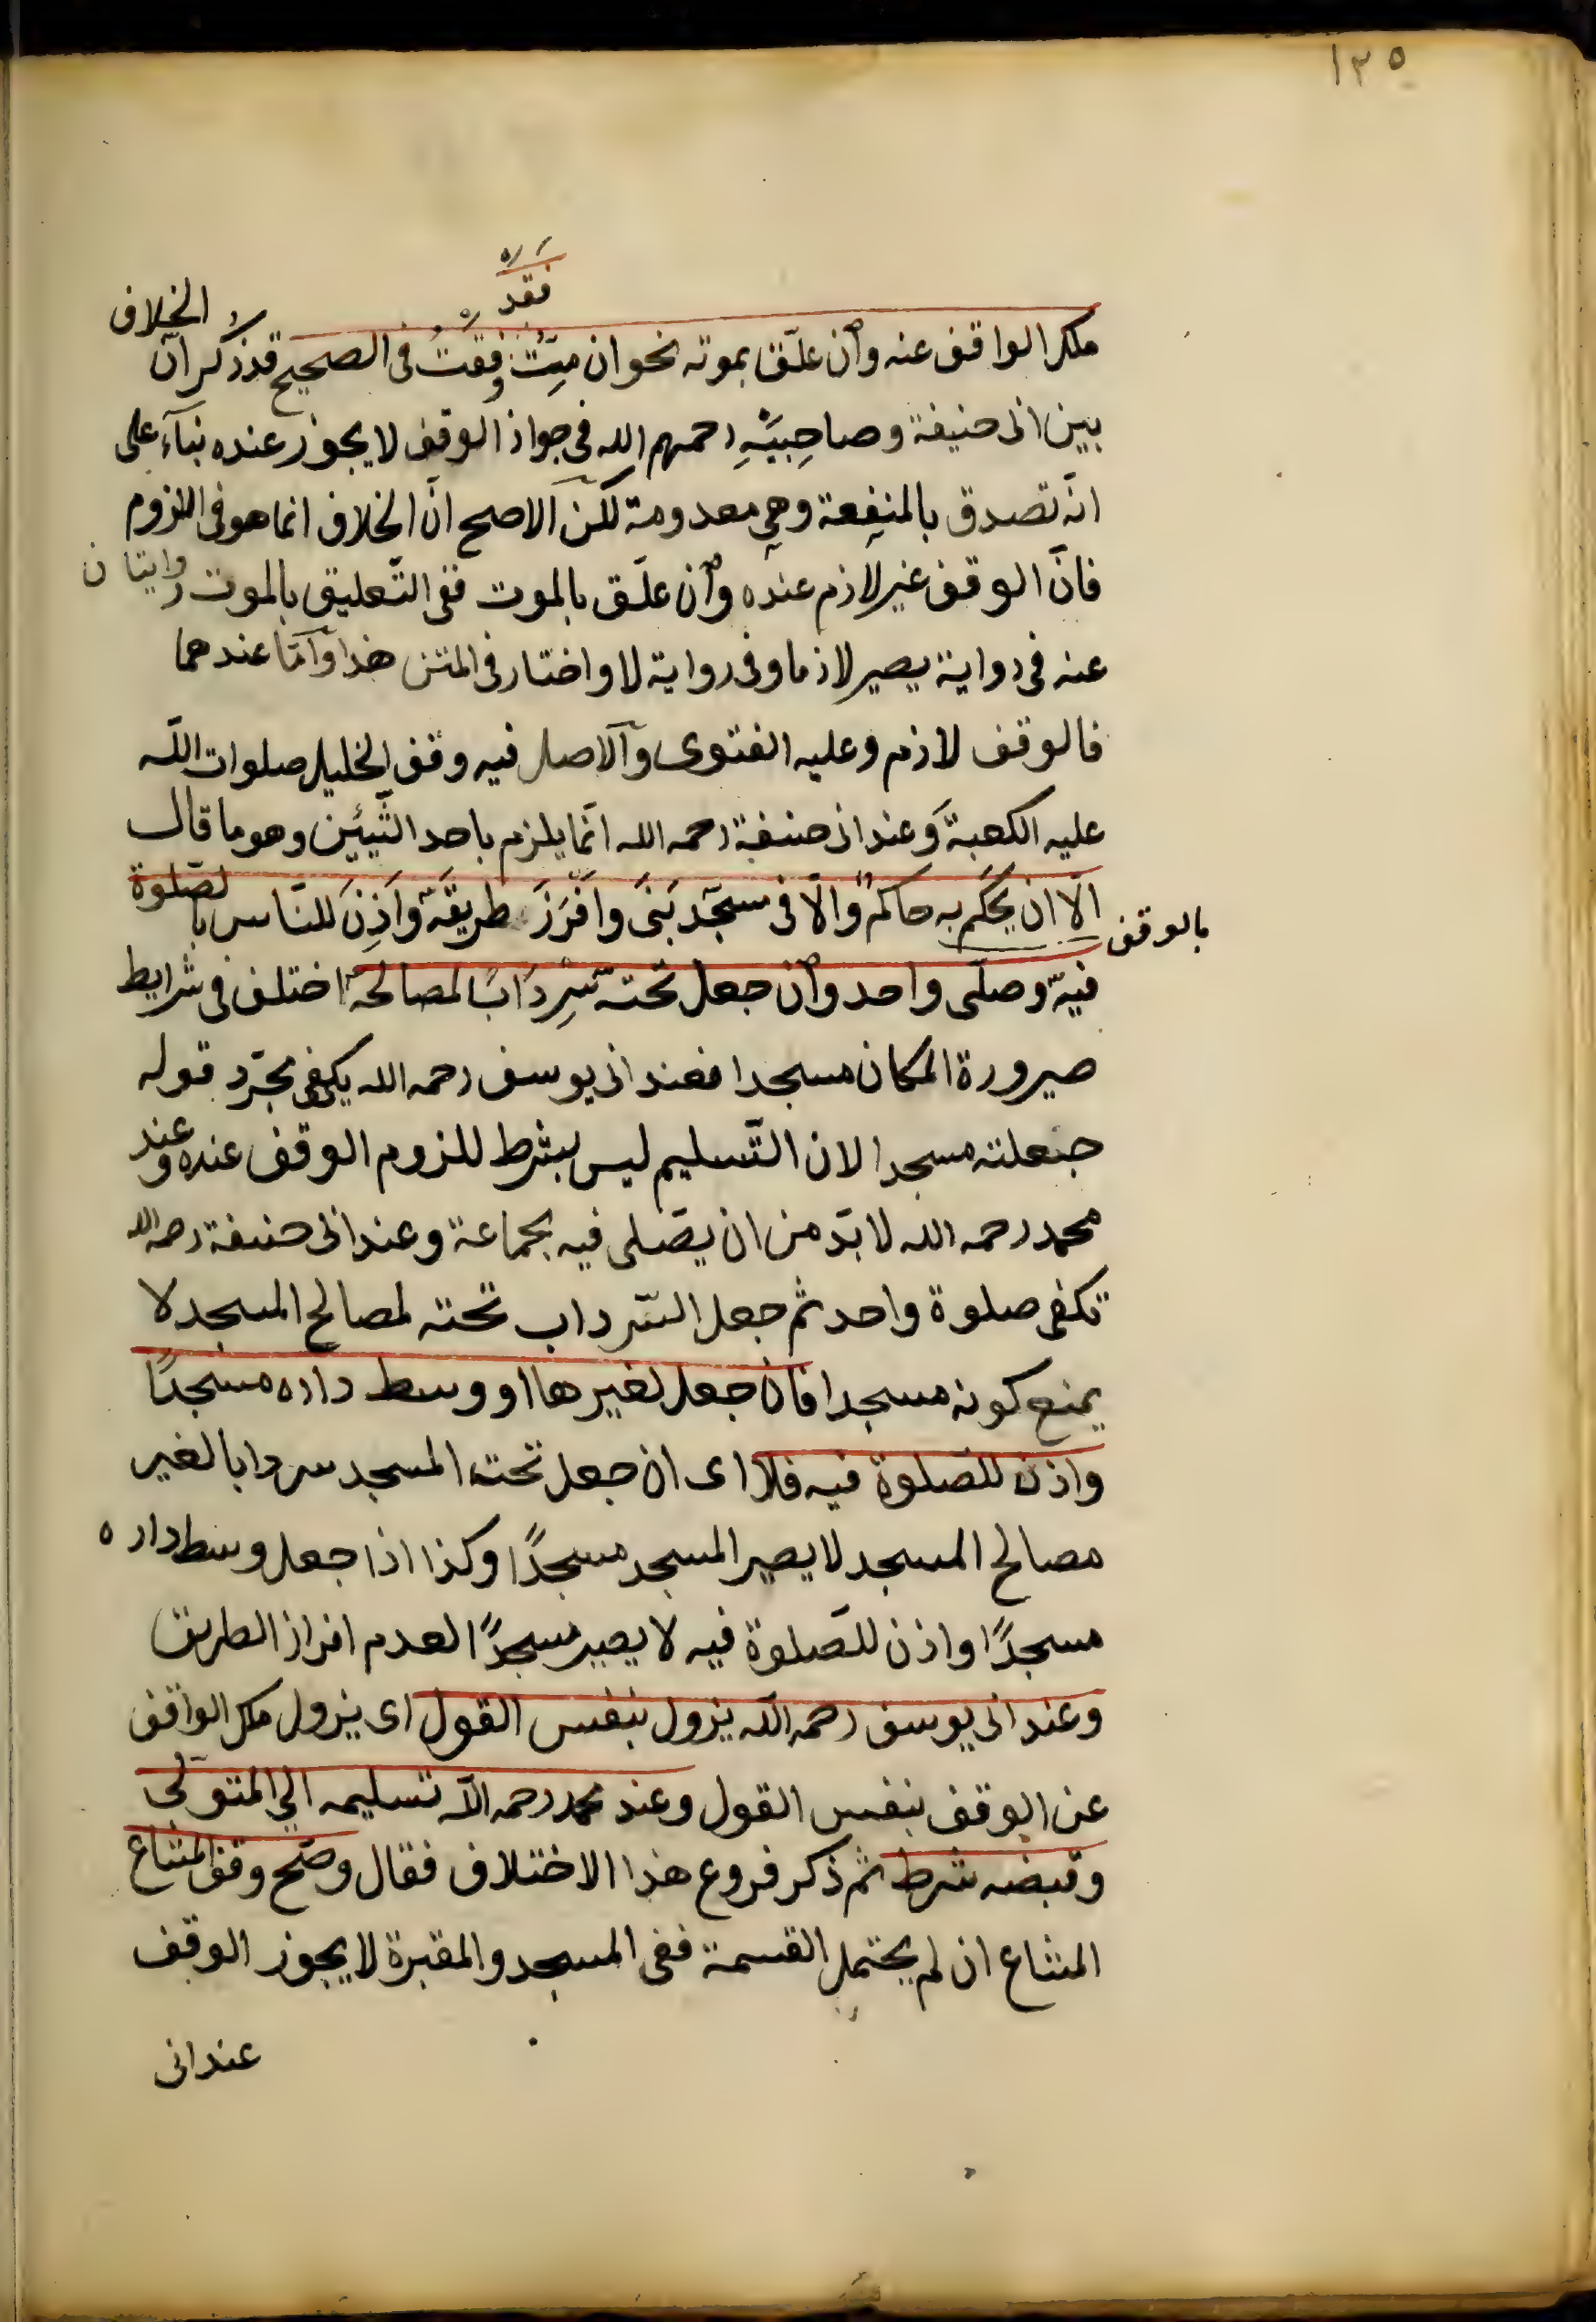 ١٣٥
فقد
ملك الواقف عنه وان علّق بموته نحو ان متّ وقفتُ فى الصحيح قد ذكر انّ الخلاف
بين ابى حنيفة وصاحبَيْهِ رحمهم الله فى جواز الوقف لا يجوز عنده بناءً على
انّه تصدق بالمنفعة وهى معدومة لكنّ الاصح انّ الخلاف انما هو فى اللزوم
فانّ الوقف غير لازم عنده وان علّق بالموت ففى التّعليق بالموت روايتان
عنه فى رواية يصير لازما وفى رواية لا واختار فى المتن هذا وامّا عندهما
فالوقف لازم وعليه الفتوى والاصل فيه وقف الخليل صلوات اللّه
عليه الكعبة وعند ابى حنيفة رحمه الله انّما يلزم باحد الشّيئين وهو ما قال
الّا ان يَحكم به حاكمٌ والّا فى مسجد بَنىَ وافرَزَ طريقَهُ واَذِنَ للنّاس بالصّلوة
بالوقف
فيه وصلّى واحد وان جعل تحته سِرْدَابًا لمصالحه اختلف فى شرايط
صيرورة المكان مسجدا فعند ابى يوسف رحمه الله يكفى مجرّد قوله
جعلته مسجدا لان التّسليم ليس بشرط للزوم الوقف عنده وعند
محمد رحمه الله لا بدّ من ان يصّلى فيه بجماعة وعند ابى حنيفة رحمه الله
تكفى صلوة واحد ثم جعل السّرداب تحته لمصالح المسجد لا
يمنع كونه مسجدا فان جعل لغيرها او وسط داره مسجدًا
واذن للصّلوة فيه فلا اى ان جعل تحت المسجد سردابا لغير
مصالح المسجد لا يصير المسجد مسجدًا وكذا اذا جعل وسط داره
مسجدًا واذن للصّلوة فيه لا يصير مسجدًا لعدم افراز الطريق
وعند ابى يوسف رحمه اللّه يزول بنفس القول اى يزول ملك الواقف
عن الوقف بنفس القول وعند محمد رحمه اللّه تسليمه الى المتولّى
وقبضه شرط ثم ذكر فروع هذا الاختلاف فقال وصحّ وقف المشاع
المشاع ان لم يحتمل القسمة ففى المسجد والمقبرة لا يجوز الوقف
عند ابى